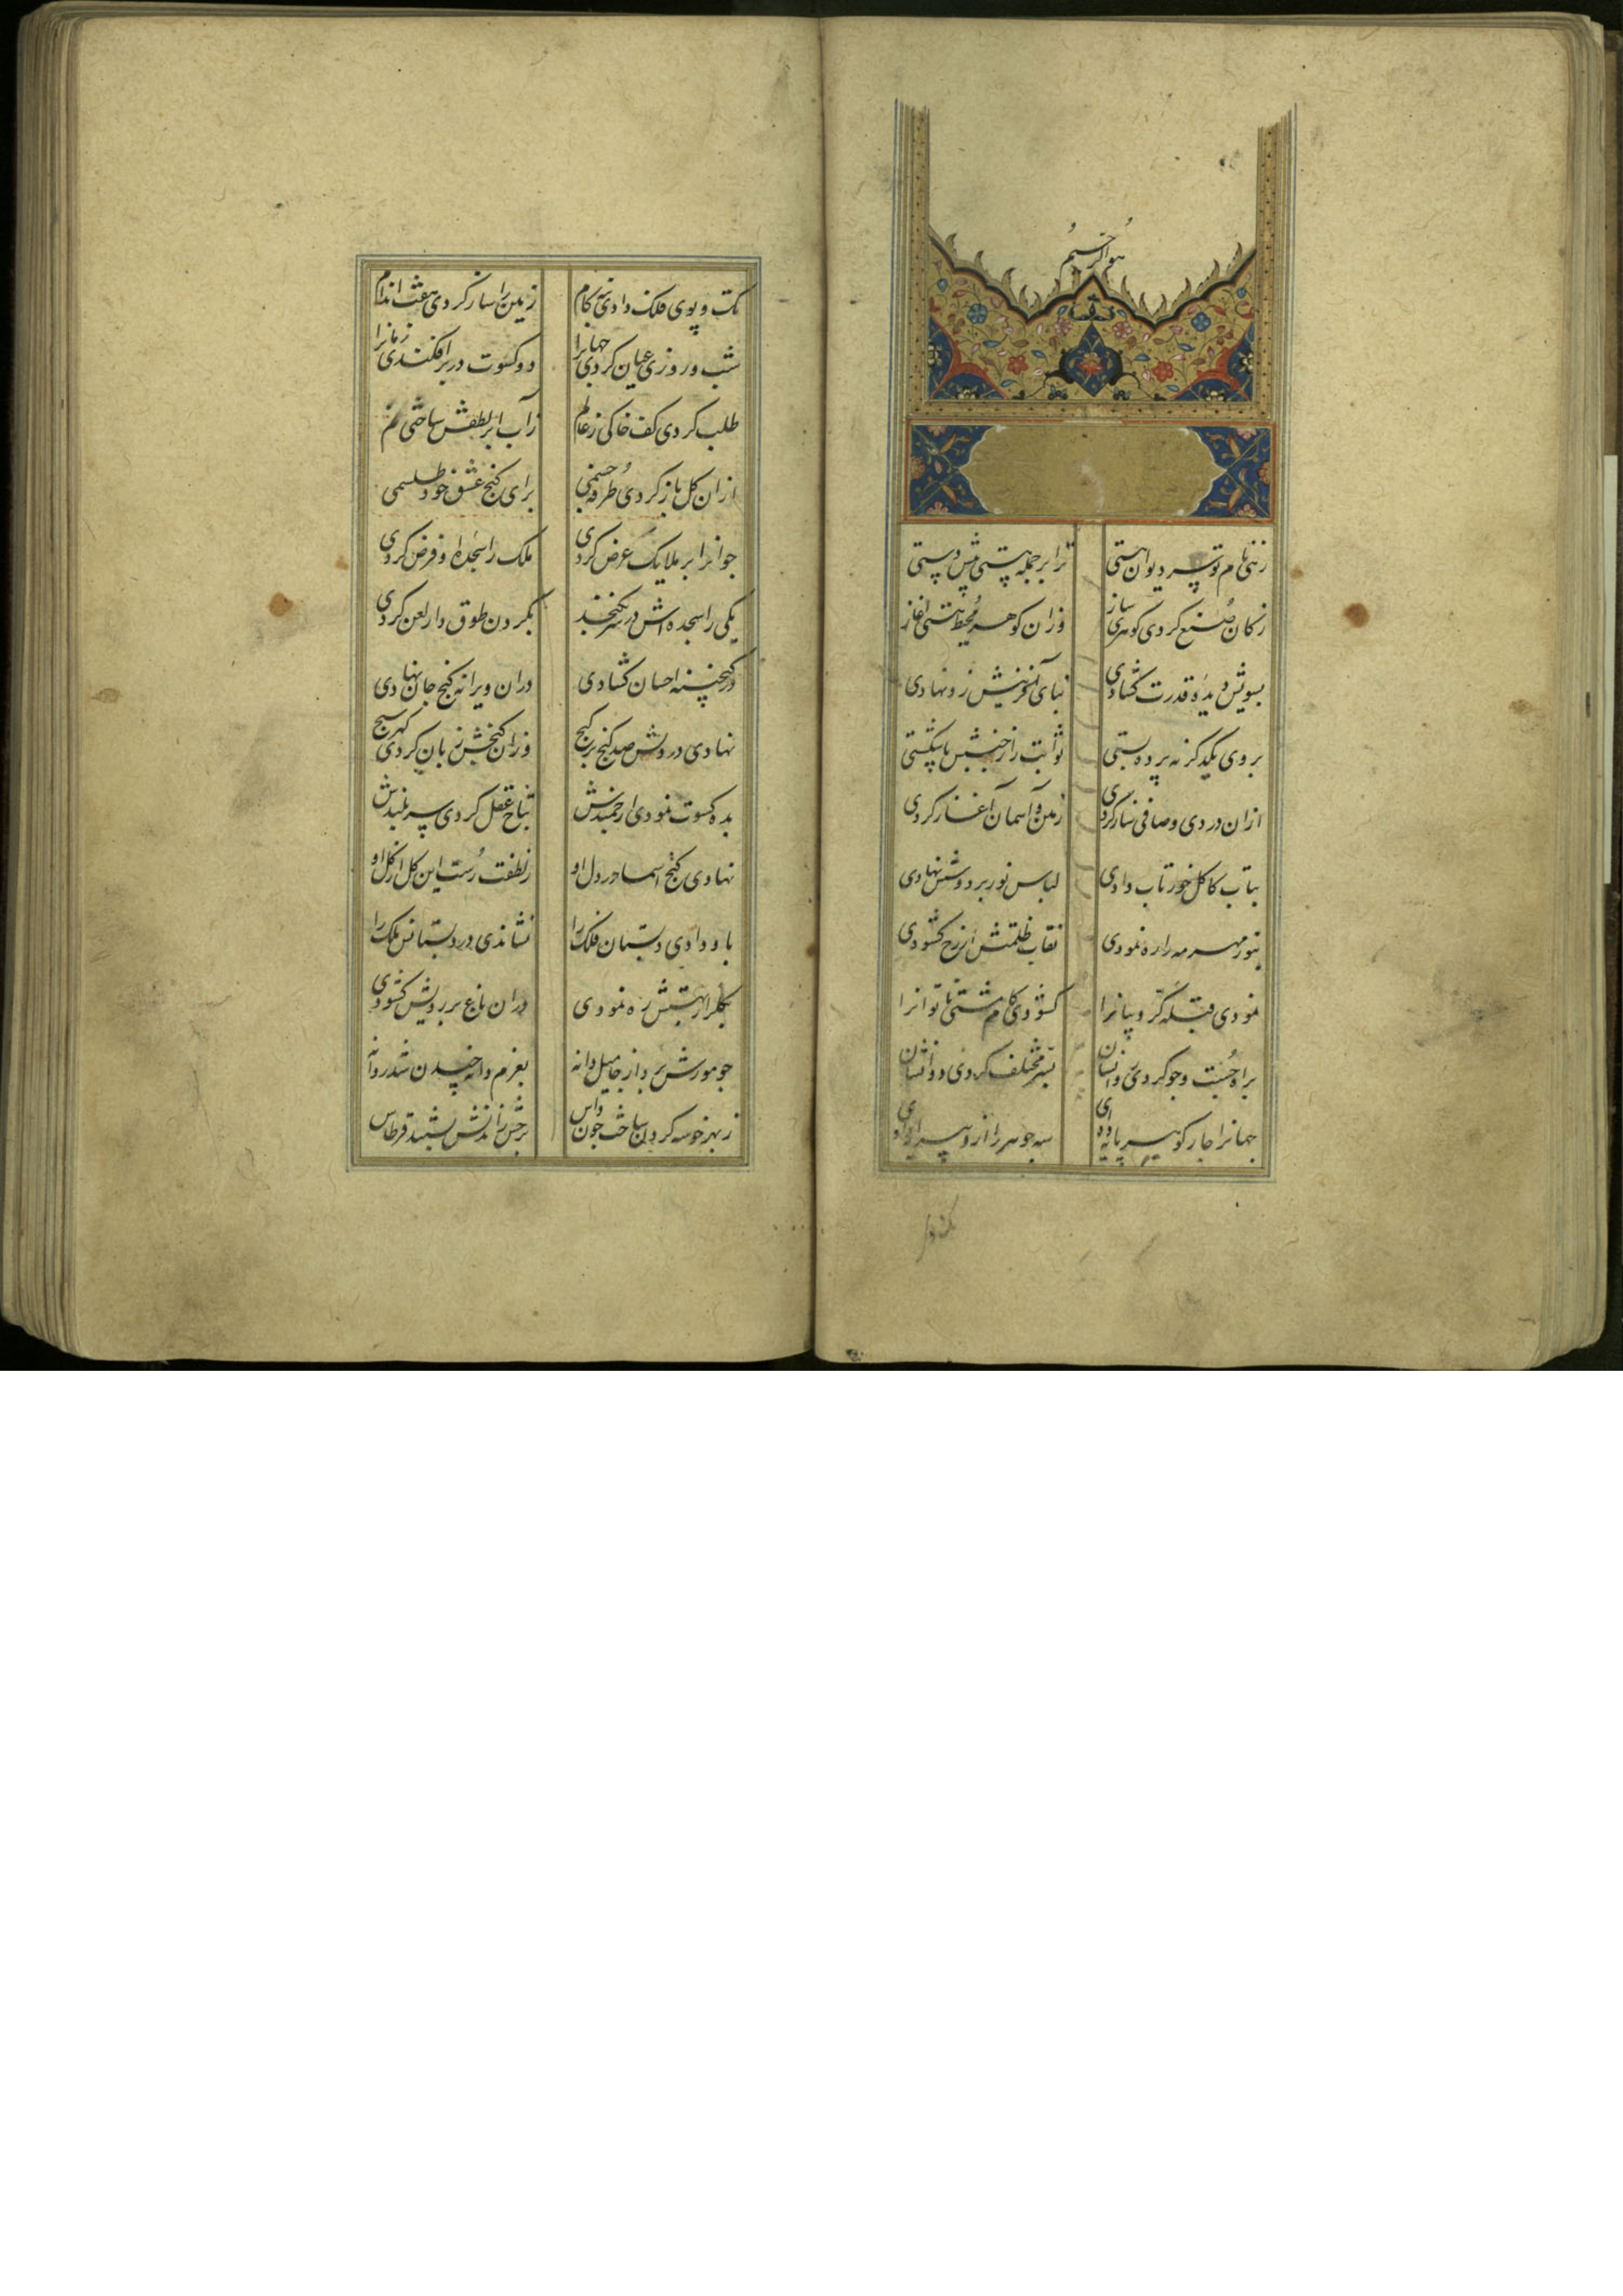 هو الرحیم
زهی نام تو سر دیوان هستی ترا بر جمله هستی پیش دستی
ز کان صنع کردی گوهری ساز وزان گوهر محیط هستی آغاز
بسویش دیدهٔ قدرت گشادی بنای آفرینش زو نهادی
بروی یکدگر نه پرده بستی ثوابت را ز جنبش پا شکستی
ازان دردی و صافی ساز کردی زمین و آسمان آغاز کردی
بتاب کاکل خور تاب دادی لباس نور بر دوشش نهادی
بنور مهر مه را ره نمودی نقاب ظلمتش از رخ گشودی
نمودی قبله کروبیانرا گشودی کام مشتی ناتوانرا
براه جست و جو کردی روانشان بسر مختلف کردی دوانشان
جهانرا چار گوهر پایه دادی سه جوهر را ازو پیرایه دادی
تک و پوی فلک دادی نه کام زمین را ساز کردی هفت اندام
شب و روزی عیان کردی جهانرا دو کسوت در بر افکندی زمانرا
طلب کردی کف خاکی ز عالم ز آب ابر لطفش ساختی نم
ازان گل باز کردی طرفه جسمی برای گنج عشق خود طلسمی
جو انرا بر ملایک عرض کردی ملک را سجدهٔ او فرض کردی
یکی را سجده اش در سر نگنجید بگردن طوق دار لعن کردی
در گنجینه احسان گشادی دران ویرانه گنج جان نهادی
نهادی در دلش صد گنج بر گنج وزان گنجش زبان کردی گهرسنج
بده کسوت نمودی ارجمندش بتاج عقل کردی سربلندش
نهادی گنج اسما در دل او ز لطفت رست این گل از گل او
باو دادی دبستان فلک را نشاندی در دبستانش ملک را
بگلزار بهشتش ره نمودی دران باغ بر رویش گشودی
جو مورش برد از جا میل دانه بعزم دانه چیدن شد روانه
ز بهر خوشه کردن ساخت جون داس